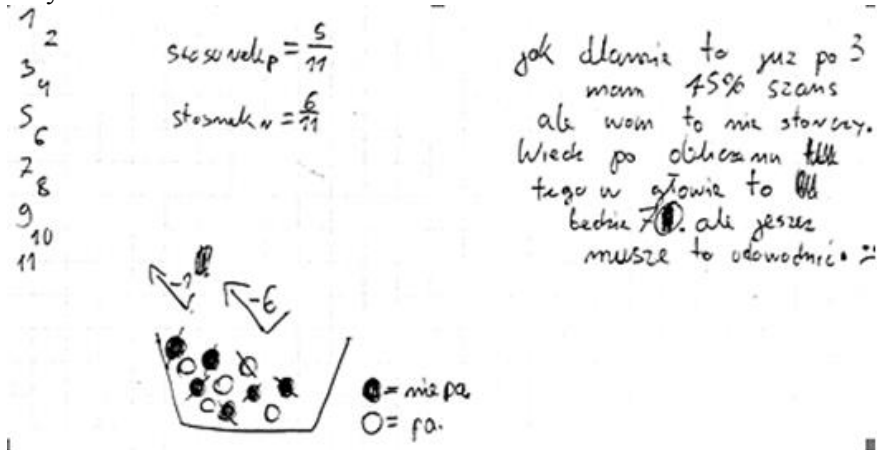 1
2
3
4
5
6
7
8
9
10
11
stosunek p = 5/11
stosunek N = 6/11
-1
-6
= nie pa.
= pa.
jak dlamnie to juz po 3
mam 45% szans
ale wom to nie starczy.
Wieck po obliczeniu
tego w głowie to
bedzie 7. ale jeszcz
musze to udowodnić. :)